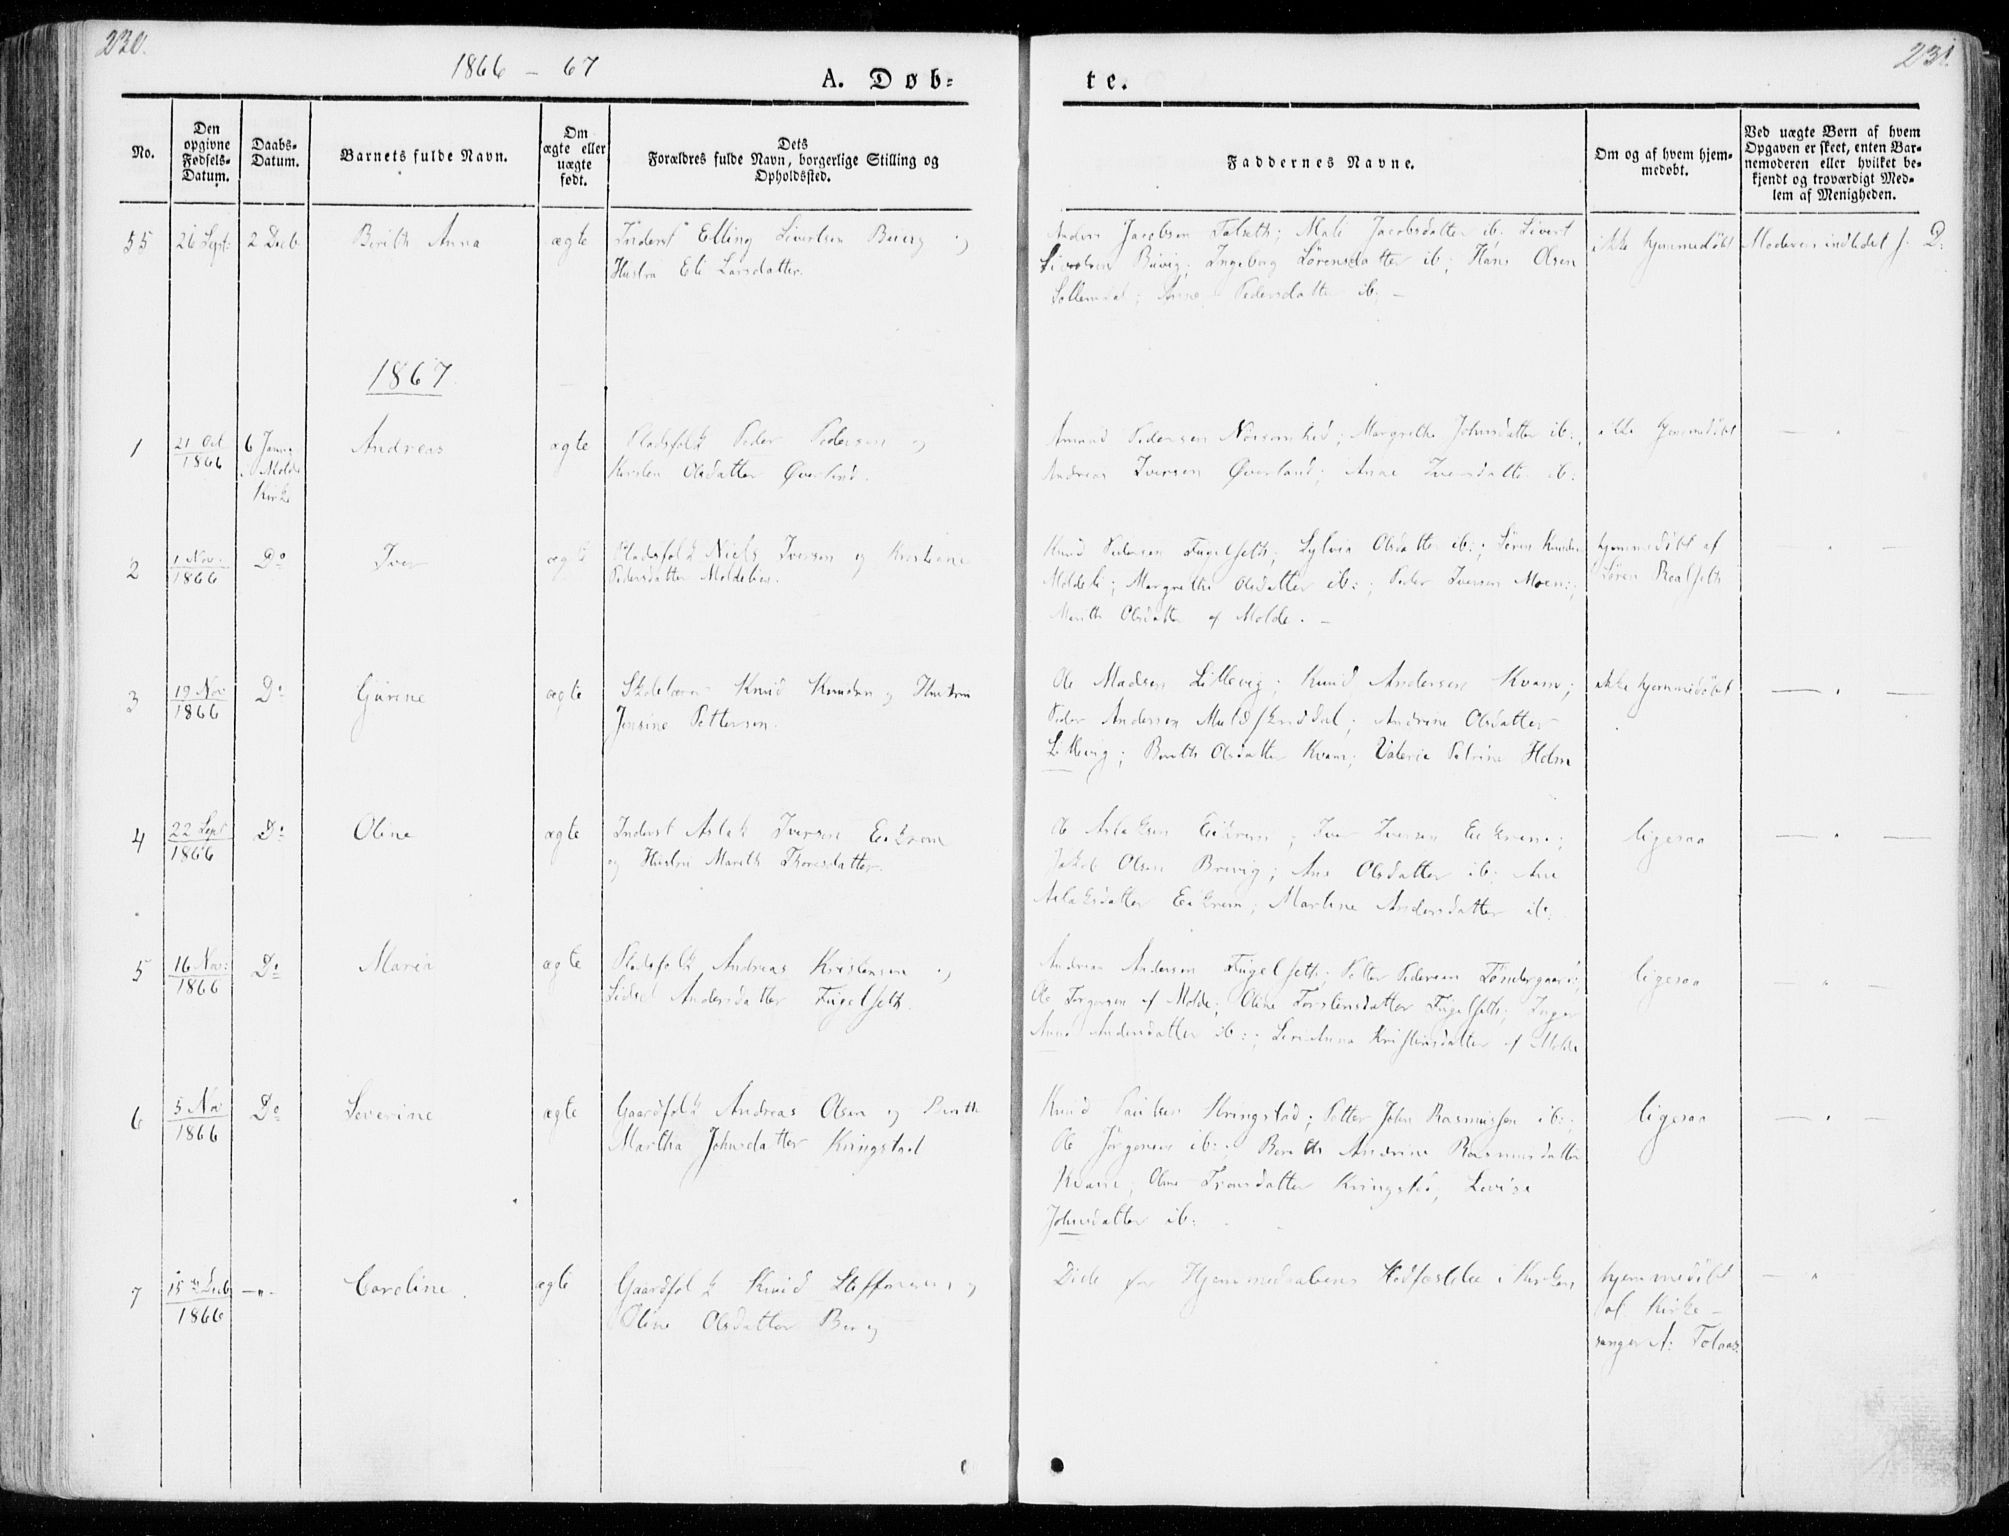 230.
1866 - 67
A. Døb-
te.
231.
No.
Den
opgivne
Fødsels-
Datum.
Daabs-
Datum.
Barnets fulde Navn.
Om
ægte eller
uægte
født.
Dets
Forældres fulde Navn, borgerlige Stilling og
Opholdssted.
Faddernes Navne.
Om og af hvem hjem-
medøbt.
Ved uægte Børn af hvem
Opgaven er skeet, enten Bar-
nemoderen eller hvilket be-
kjendt og troværdigt Med-
lem af Menigheden.
55
26 Sept:
2 Decb
Berith Anna
ægte
Inderst Elling Sivertsen Buvig og
Hustru Eli Larsdatter.
Anders Jacobsen Talseth; Mali Jacobsdatter ib: Sivert
Sivertsen Buvig; Ingeborg Sørensdatter ib; Hans Olsen
Anne Pedersdatter ib: -
ikke hjemmedøbt
Moderen indledet s. D:
1867
1
21 Oct
1866
6 Janu
Molde
Kirke
Andreas
ægte
Pladsfolk Peder Pedersen og
Kirsten Olsdatter Øverland.
Amund Pedersen ; Margrethe Johnsdatter ib:
Andreas Iversen Øverland; Anne Iversdatter ib:
ikke hjemmedøbt
— " —
2
1 Nov:
1866
Do
Iver
ægte
Pladsfolk Niels Iversen og Kristiane
Pedersdatter Moldelien.
Knud Pedersen Fugelseth; Sylvia Olsdatter ib:; Søren Knudsen
Moldeli; Margrethe Olsdatter ib:; Peder Iversen Moen:;
Marith Olsdatter af Molde. -
hjemmedøbt af
Søren Roalseth
— " —
3
19 Nov
1866
Do
Gjurine
ægte
Skolelærer Knud Knudsen og Hustru
Jensine Pettersen.
Ole Madsen Lillevig; Knud Andersen Kvam;
Peder Andersen ; Andrine Olsdatter
Lillevig; Berith Olsdatter Kvam; Valeria Petrine Holm
ikke hjemmedøbt
— " —
4
22 Sept
1866
Do
Oline
ægte
Inderst Aslak Iversen Eikrem
og Hustru Marith Thoresdatter.
Ole Aslaksen Eikrem; Iver Iversen Eikrem;
Jakob Olsen Brevig; Ane Olsdatter ib: Ane
Aslaksdatter Eikrem; Martine Andersdatter ib:
ligesaa
— " —
5
16 Nov:
1866
Do
Maria
ægte
Pladsfolk Andreas Kristensen og
Lidse Andersdatter Fugelseth.
Andreas Andersen Fugelseth; Petter Pedersen Søndergaard;
Ole Torgersen af Molde; Oline Torstensdatter Fugelseth; Inger
Anna Andersdatter ib:; Kristensdatter af Molde
ligesaa
— " —
6
5 Nov
1866
Do
Severine
ægte
Gaardfolk Andreas Olsen og Berith
Martha Johnsdatter Kringstad
Knud Paulsen Kringstad; Petter John Rasmussen ib:;
Ole Jørgensen ib:; Berith Andrine Rasmusdatter
Kvam; Oline Tronsdatter Kringstad, Lovise
Johnsdatter ib:
ligesaa
— " —
7
15de Decb
1866
— " —
Caroline.
ægte
Gaardfolk Knud Steffensen og
Oline Olsdatter
Døde før Hjemmedaabens Stadfæstelse i Kirken
hjemmedøbt
af Kirke-
sanger A: Tolaas.
— "